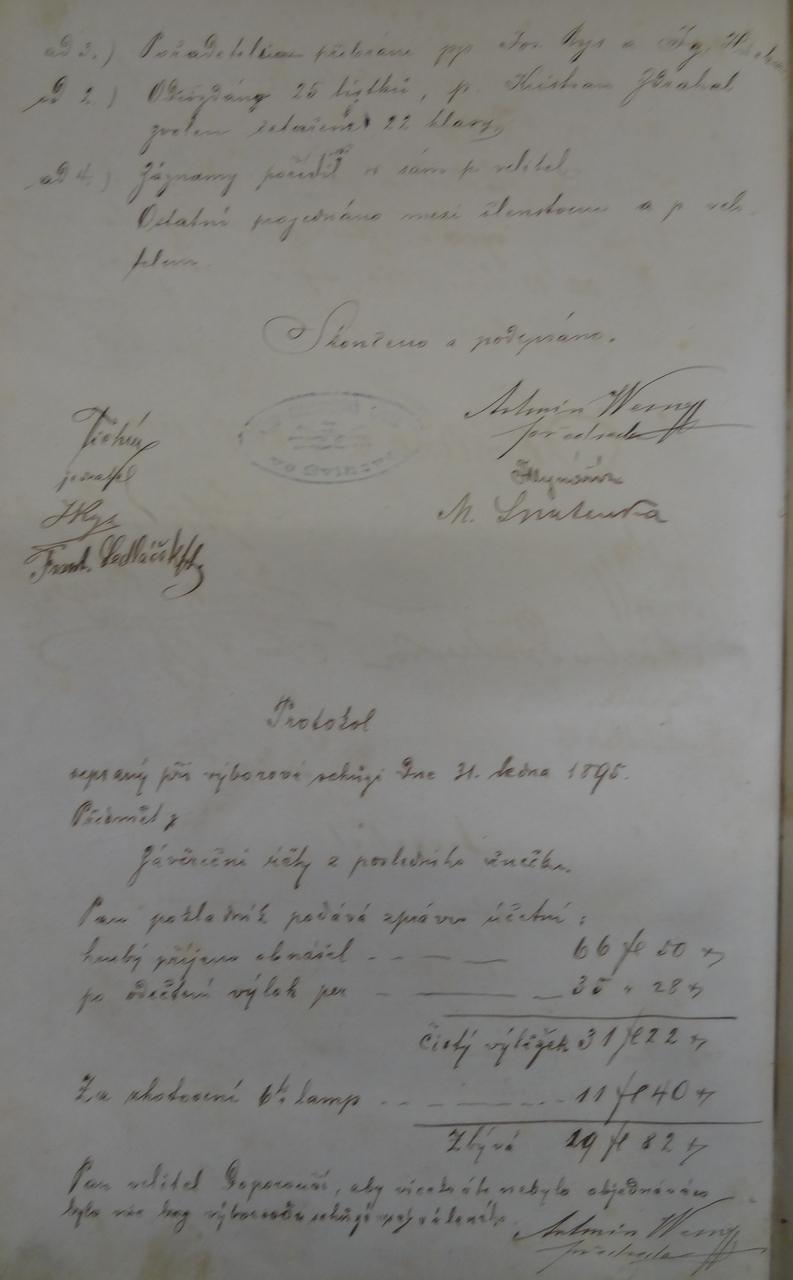 ad 3.) Pořadatelům přibráni pp Jos. Rys a
ad 2.) Odevzdány 25 lístků, p. Kristian Zdrahal
zvolen 22 hlasy.
ad 4.) Záznamy pořídil si sám p velitel.
Ostatní projednáno mezi členstvem a p veli-
telem.
Skončeno a podepsáno.
Armin Werner
předseda
Tichý
jednatel
Mlynář
JRys
M. Smutenka
Frant. Sedláček
Protokol
sepsaný při výborové schůzi dne 31. ledna 1895.
Předmět;
Závěreční účty z posledního věnečku.
Pan pokladník podává zprávu účetní:
hrubý příjem obnášel - - — 66 fl 50 kr
po odečtení výloh per - — — 35 „ 28 kr
Čistý výtěžek 31 fl 22 kr
Za zhotovení 6ti lamp - - — - - 11 fl 40 kr
Zbývá 19 fl 82 kr
Pan velitel doporoučí, aby vícekráte nebylo objednáváno
bylo více bez výborová schůze
Armin Werner
předseda